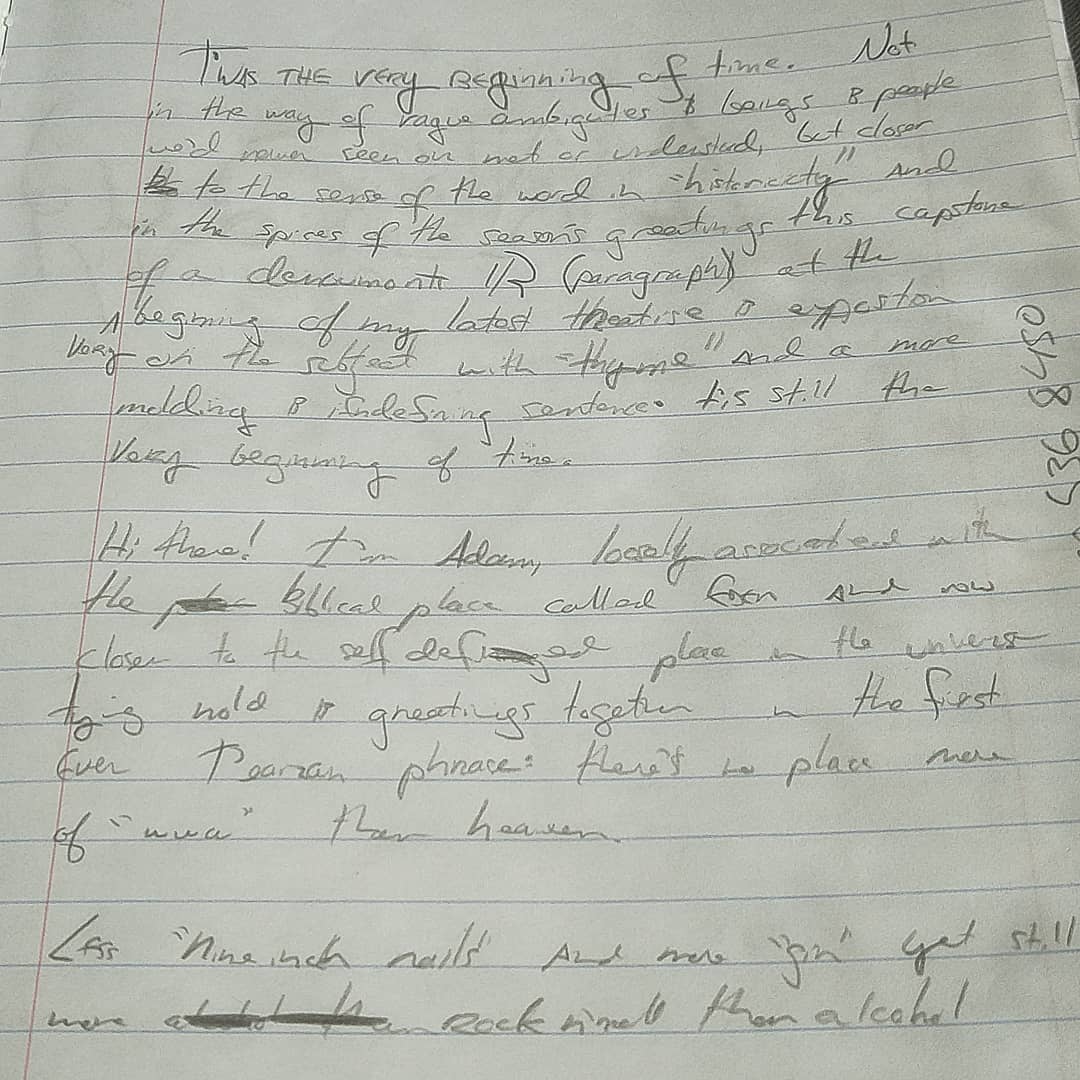 T'WAS THE very Beginning of time. Not
in the way of vague ambiguties & beings & people
we'd never seen or met or understand, but closer
to the sense of the word in "historicicty" And
in the spices of the season's greetings this capstone
of a (paragraph) at the
beginning of my latest &
Very on the subject with "thyme" And a more
melding & sentence. tis still the
Very beginning of time.
Hi there! I'm Adam, associated with
the place called And now
closer to the self place in the
hold & greetings together in the first
Ever phrase: there's no place more
of than heaven
Less "Nine inch nails" And more "gin" yet still
more than alcohol
536 8450